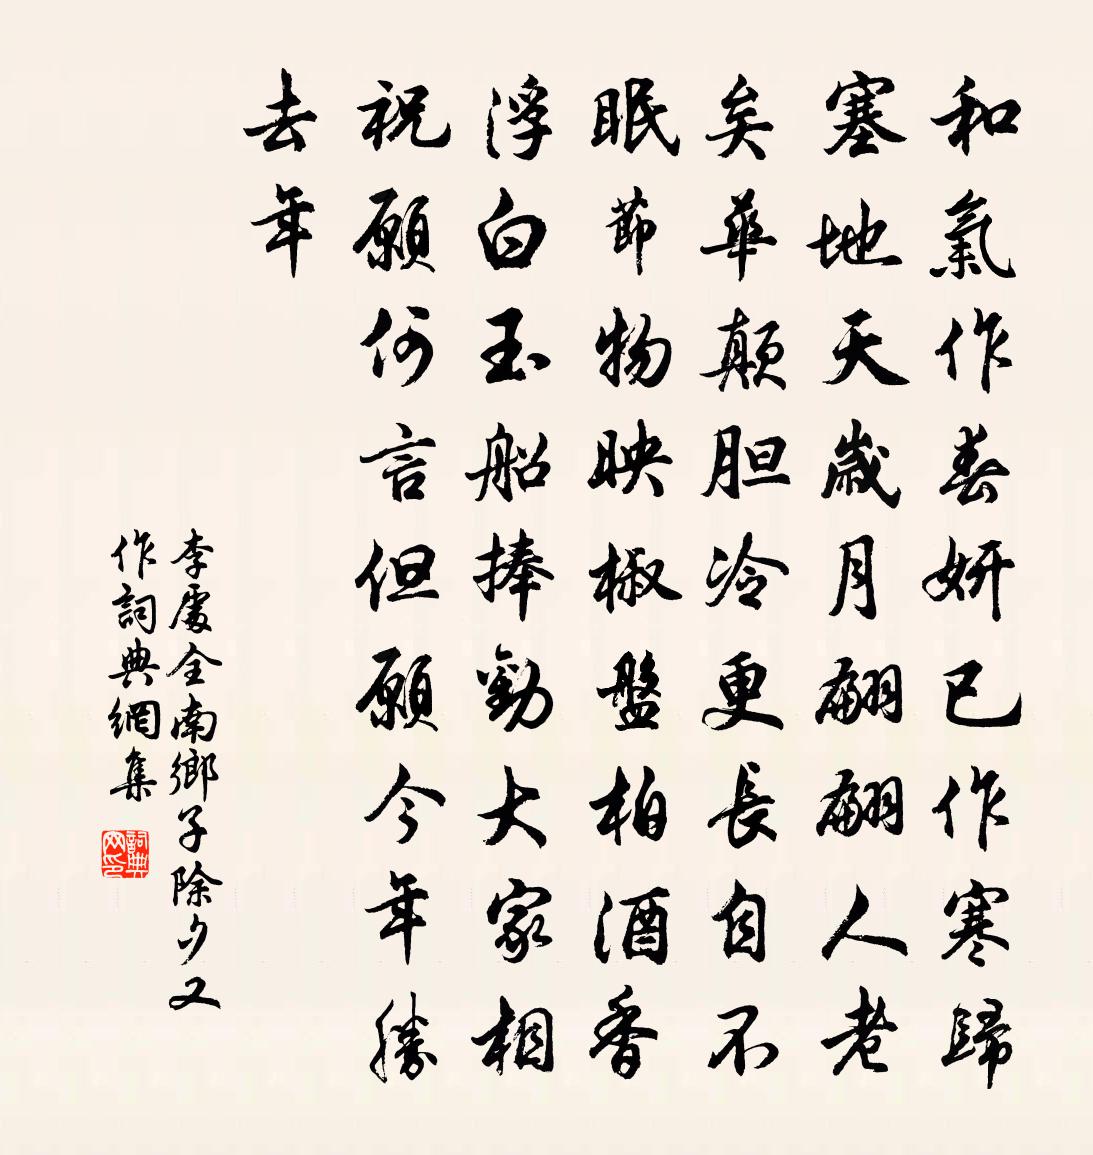 和氣作春妍已作寒歸
塞地天歲月翩翩人老
矣華顛胆冷更長自不
眠節物映椒盤柏酒香
浮白玉船捧勸大家相
祝願何言但願今年勝
去年
李處全南鄉子除夕又
作詞典網集
詞典網印